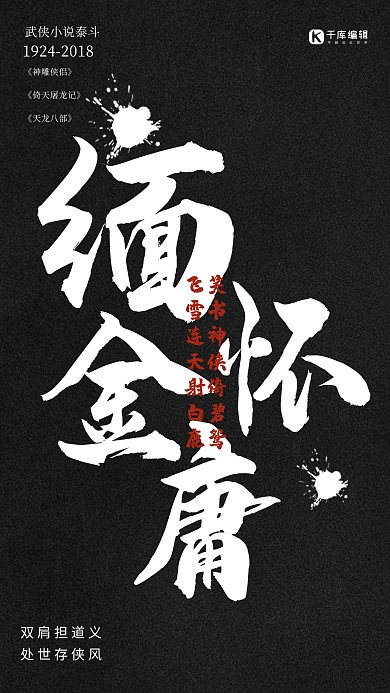 武侠小说泰斗
1924-2018
《神雕侠侣》
《倚天屠龙记》
《天龙八部》
千库编辑
缅怀
金庸
飞雪连天射白鹿
笑书神侠倚碧鸳
双肩担道义
处世存侠风